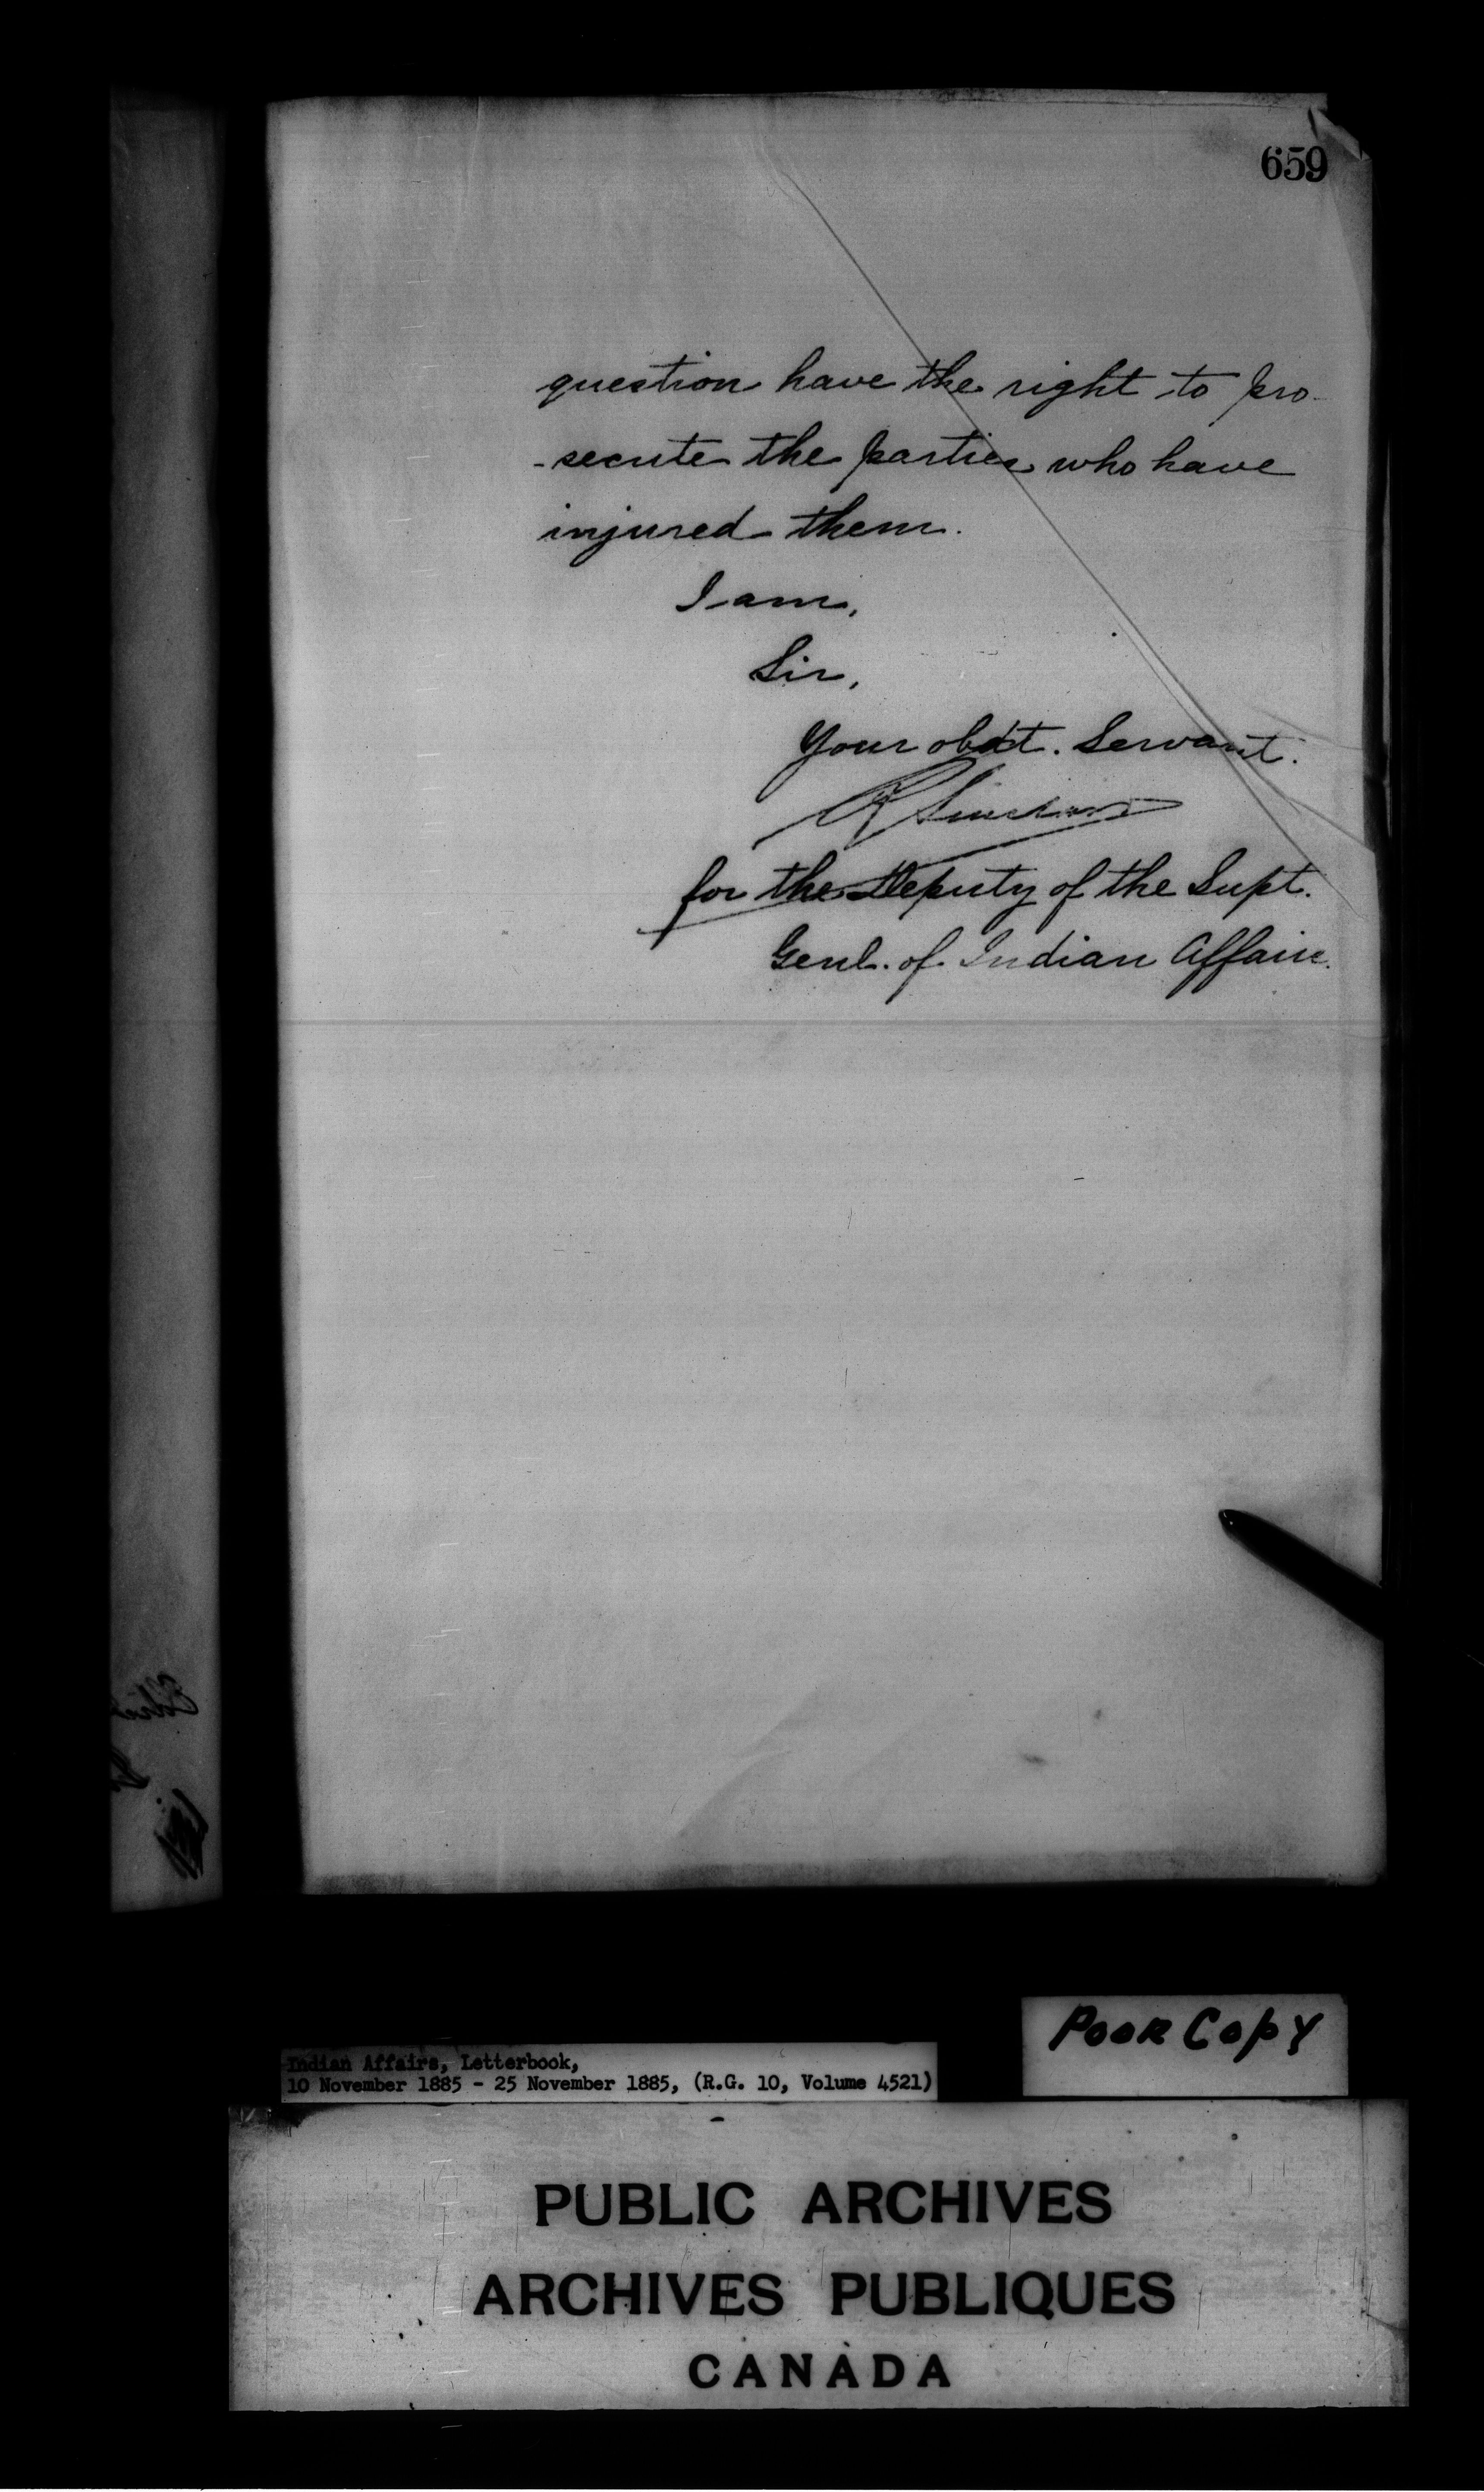 659
question have the right to pro-
-secute the parties who have
injured them.
I am,
Sir,
Your obdt. Servant.
R Sinclair
for the Deputy of the Supt.
Genl. of Indian Affairs.
Poor Copy
Indian Affairs, Letterbook,
10 November 1885 - 25 November 1885, (R.G. 10, Volume 4521)
PUBLIC ARCHIVES
ARCHIVES PUBLIQUES
CANADA